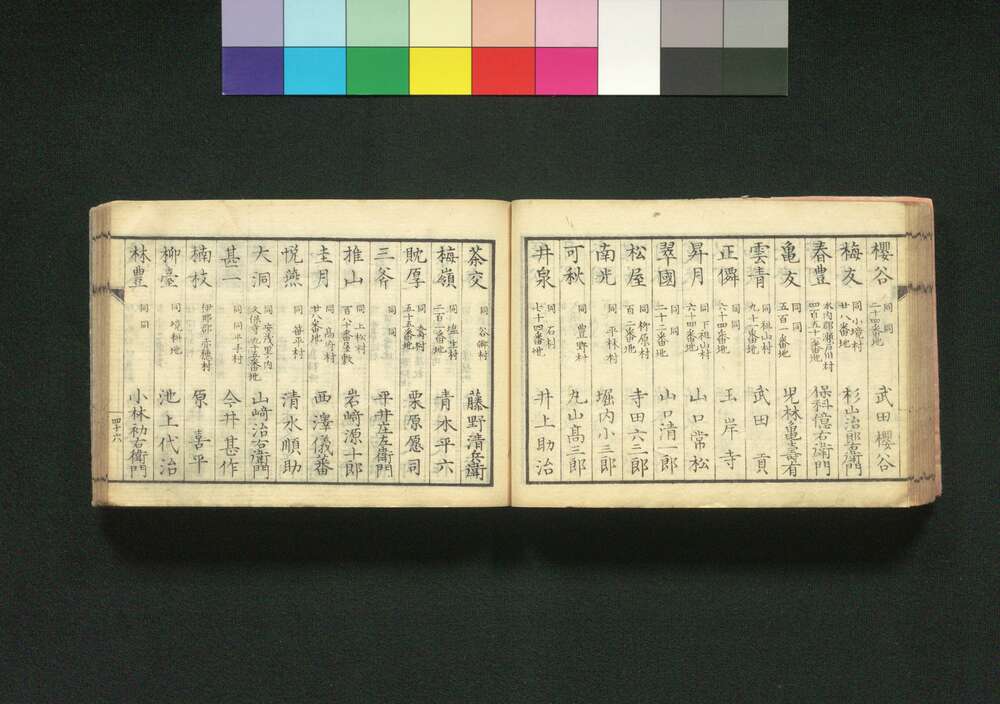 櫻谷 同 同 二十四番地 武田櫻谷
梅友 同 小境村 廿八番地 杉山治郎右衛門
春豊 水内郡瀬戸川村 四百九十一番地 保科億右衛門
亀友 同 同 五百一番地 児林亀壽有
雲青 同 祖山村 九十一番地 武田貢
正儜 同 同 六十四番地 玉岸寺
昇月 同 下祖山村 六十四番地 山口常松
翠國 同 同 二十二番地 山口清一郎
松屋 同 栃原村 百二番地 寺田六三郎
南光 同 平林村 堀内小三郎
可秋 同 豊野村 丸山髙三郎
井泉 同 石村 七十四番地 井上助治
茶交 同 谷御村 藤野清兵衛
梅嶺 同 塩生村 二百二番地 青木平六
厚 同 村 五十五番地 栗原愿司
三斧 同 同 平井庄左衛門
推山 同 上松村 百八十番屋敷 岩﨑源十郎
圭月 同 髙府村 廿八番地 西澤儀蕃
悦燕 同 笹平村 清水順助
大洞 同 安茂里ノ内 久保寺九十五番地 山﨑治右衛門
甚二 同 同平手村 今井甚作
楠枝 伊那郡赤穂村 原喜平
柳臺 同 境耕地 池上代治
林豊 同 同 小林初右衛門
四十六